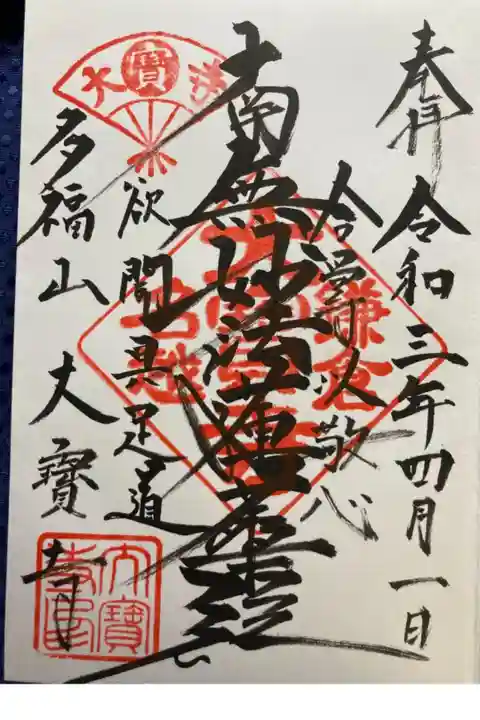 奉拝 令和三年四月一日
合掌以敬心
南無妙法蓮華経
欲聞具足道
多福山 大寳寺
大寳
鎌倉
名越
大寳寺印